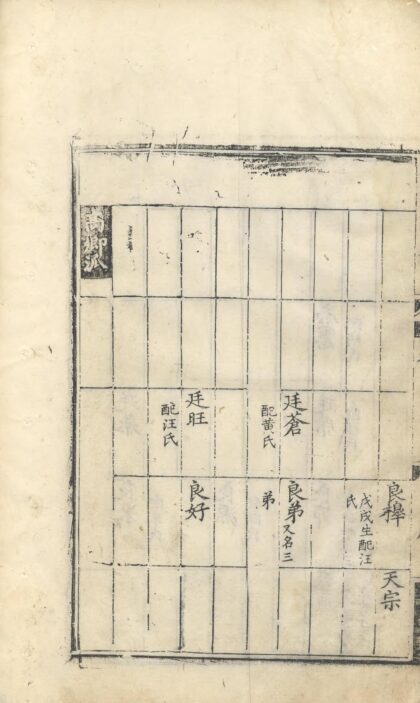 良檡
戊戌生配汪
氏
天宗
廷蒼
配黄氏
良弟又名三
弟
廷旺
配汪氏
良好
卿派